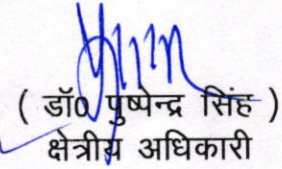 ( डॉ0 पुष्पेन्द्र सिंह )
क्षेत्रीय अधिकारी